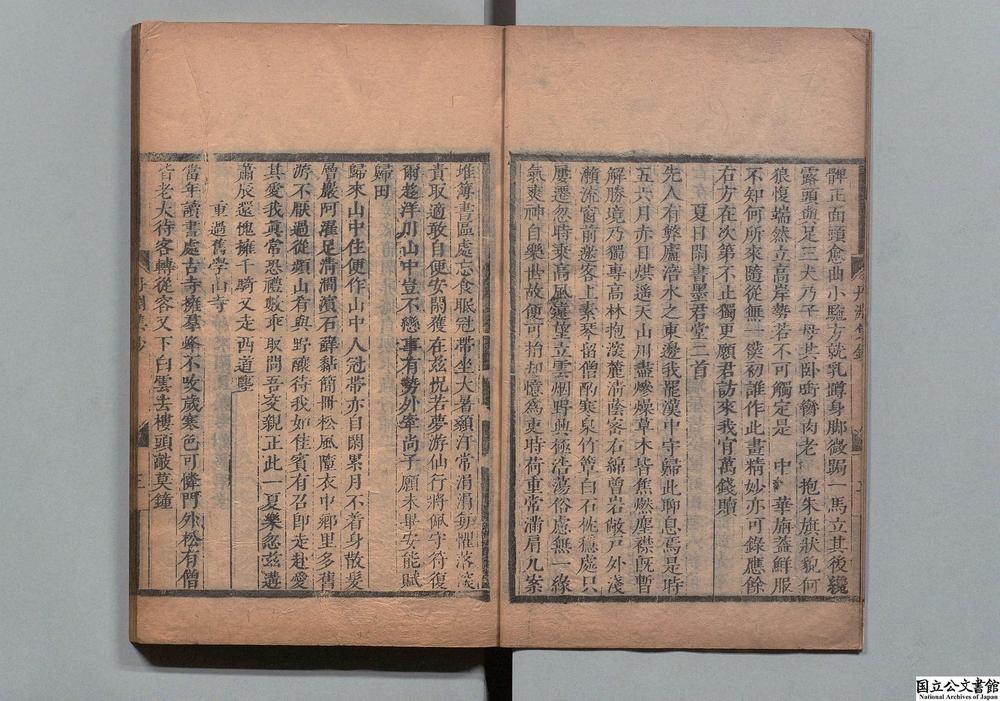 髀正面頭愈曲小騘方就乳蹲身脚微跼一馬立其後纔
露頭與足三犬乃子母其臥啃臠肉老 抱朱旗狀貌何
狼愎端然立高岸勢若不可觸定是 中 華旃葢鮮服
不知何所來隨從無一僕初誰作此畫精妙亦可錄應餘
右方在次第不止獨更願君訪來我官萬錢贖
夏日閑書墨君堂二首
先人有弊廬涪水之東邊我罷漢中守歸此聊息焉是時
五六月赤日烘遥天山川盡慘燥草木皆焦燃塵襟既暫
解勝境乃獨專高林抱深麓清蔭密石綿曾岩敞戸外淺
瀨流窗前邀客上素琴留僧酌寒泉竹簟白石枕穩處只
屢遷忽時乘高風遠望立雲烟野興極浩蕩俗慮無一緣
氣爽神自樂世故便可捐却憶爲吏時荷重常滿肩几案
堆簿書區處忘食眠冠帶坐大暑顙汗常涓涓每懼落深
責取適敢自便安閑獲在兹怳若夢游仙行將佩守符復
爾趍洋川山中豈不戀事有勢外牽尚子願未畢安能賦
歸田
歸來山中住便作山中人冠帶亦自閑累月不着身散髮
層巖阿濯足淸澗濱石蘚黏簡冊松風隳衣巾鄉里多舊
游不厭過從頻山有與野釀待我如佳賓有召卽走赴愛
其愛我眞常恐禮數乖取問吾交親正此一夏樂忽兹遘
蕭辰還愧擁千騎又走西道塵
重過舊學山寺
當年讀書處古寺擁羣峰不改歲寒色可憐門外松有僧
皆老大待客轉從容又下白雲去樓頭敲莫鐘
三
国立公文書館
National Archives of Japan